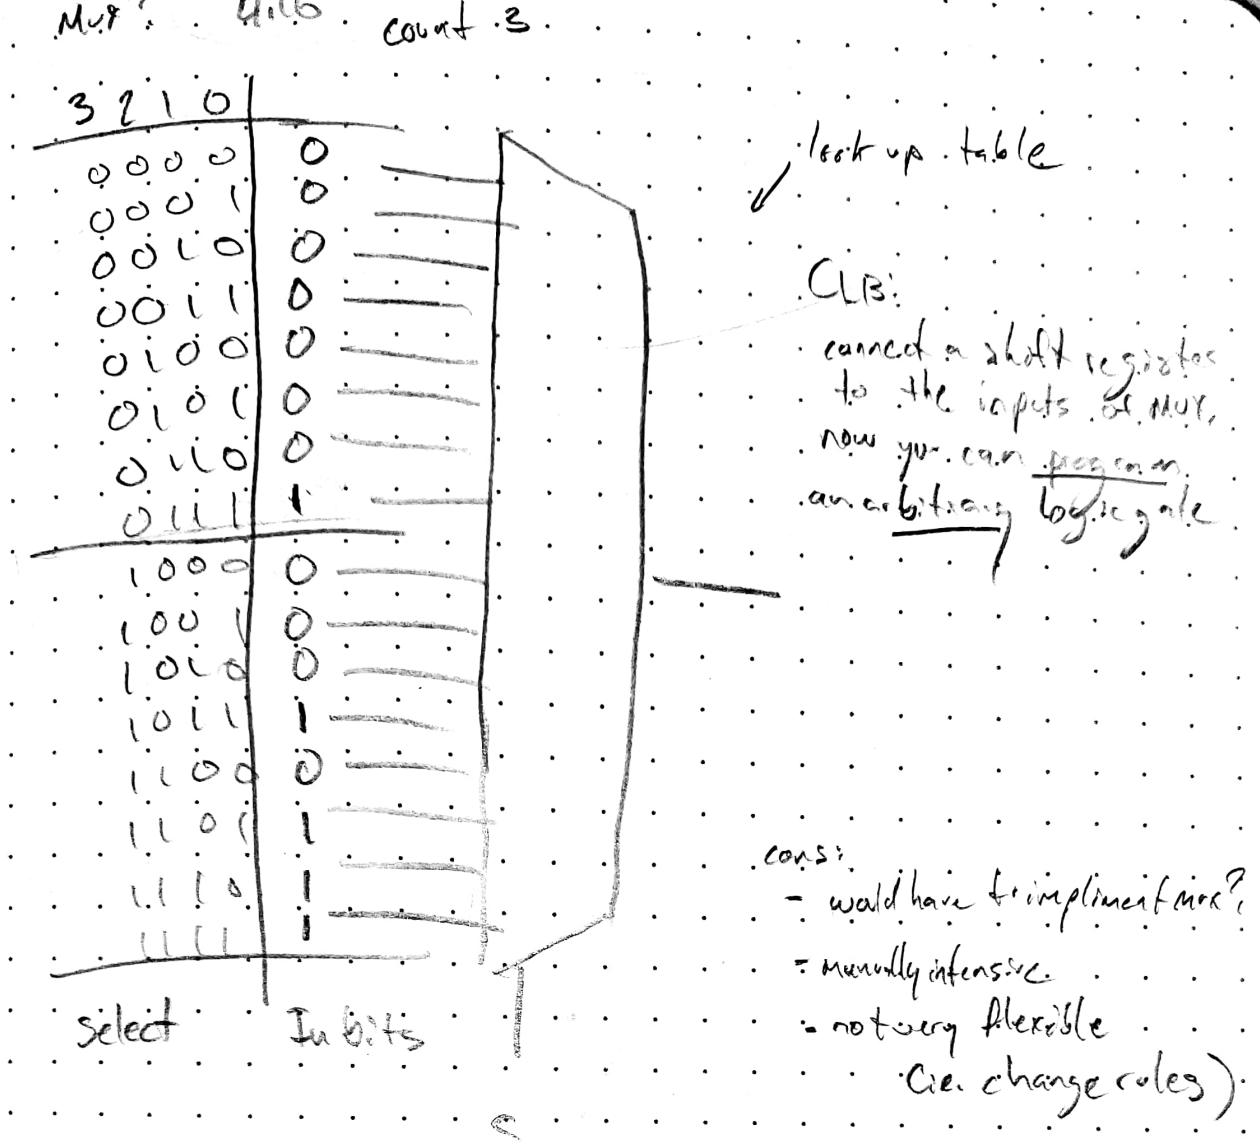 Mux? 4:16 count 3
3 2 1 0
0 0 0 0 0
0 0 0 1 0
0 0 1 0 0
0 0 1 1 0
0 1 0 0 0
0 1 0 1 0
0 1 1 0 0
0 1 1 1 1
1 0 0 0 0
1 0 0 1 0
1 0 1 0 0
1 0 1 1 1
1 1 0 0 0
1 1 0 1 1
1 1 1 0 1
1 1 1 1 1
select In bits
look up table
CLB:
connect a shift register
to the inputs of mux,
now you can program
an arbitrary logic gate
cons:
- would have to impliment mux?
- manually intensive
- not very flexible
(ie. change rules)